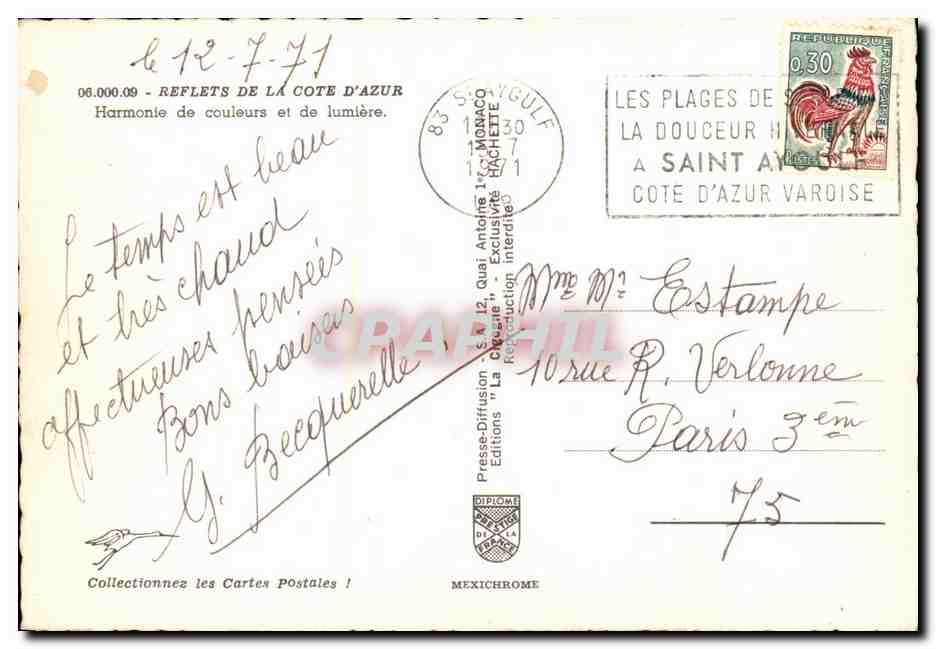 le 12-7-71
06.000.09 - REFLETS DE LA COTE D'AZUR
Harmonie de couleurs et de lumière.
Le temps est beau
et très chaud
affectueuses pensées
Bons baisers
G. Becquerelle
Collectionnez les Cartes Postales !
83 ST AYGULF
30
7
71
REPUBLIQUE FRANÇAISE
0,30
POSTES
LES PLAGES DE
LA DOUCEUR
A SAINT AYGULF
COTE D'AZUR VAROISE
Presse-Diffusion S.A. 12, Quai Antoine 1er MONACO
Editions "La Cigogne" - Exclusivité HACHETTE
Reproduction interdite
DIPLOME
PRESTIGE
DE LA
FRANCE
MEXICHROME
Estampe
10 rue R. Verlonne
Paris 3em
75
CPARPHIL